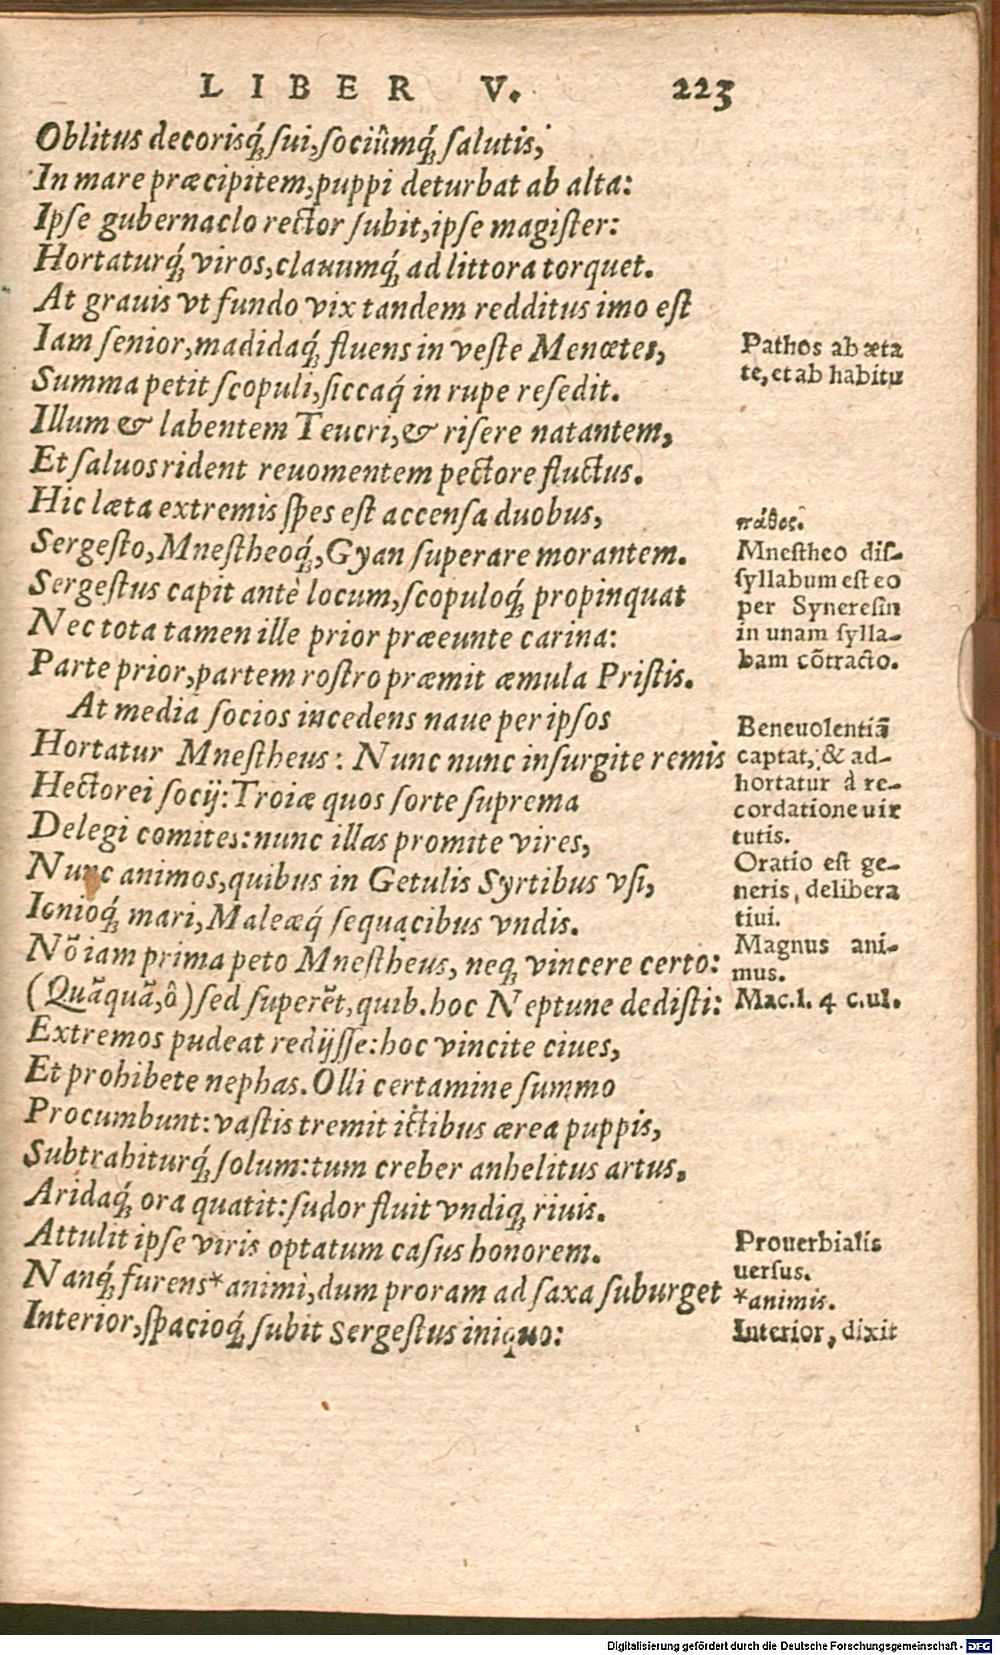 LIBER V. 223
Oblitus decorisq́; sui, sociûmq́; salutis,
In mare præcipitem, puppi deturbat ab alta:
Ipse gubernaclo rector subit, ipse magister:
Hortaturq́; viros, clauumq́; ad littora torquet.
At grauis vt fundo vix tandem redditus imo est
Iam senior, madidaq́; fluens in veste Menœtes,
Summa petit scopuli, siccaq́ in rupe resedit.
Illum & labentem Teucri, & risere natantem,
Et saluos rident reuomentem pectore fluctus.
Hic læta extremis spes est accensa duobus,
Sergesto, Mnestheoq́;, Gyan superare morantem.
Sergestus capit antè locum, scopuloq́; propinquat
Nec tota tamen ille prior præeunte carina:
Parte prior, partem rostro præmit æmula Pristis.
At media socios incedens naue per ipsos
Hortatur Mnestheus: Nunc nunc insurgite remis
Hectorei socij: Troiæ quos sorte suprema
Delegi comites: nunc illas promite vires,
Nunc animos, quibus in Getulis Syrtibus vsi,
Ionioq́; mari, Maleæq́ sequacibus vndis.
Nō iam prima peto Mnestheus, neq; vincere certo:
(Quāquā, ô) sed superēt, quib. hoc Neptune dedisti:
Extremos pudeat redijsse: hoc vincite ciues,
Et prohibete nephas. Olli certamine summo
Procumbunt: vastis tremit ictibus ærea puppis,
Subtrahiturq́; solum: tum creber anhelitus artus,
Aridaq́; ora quatit: sudor fluit vndiq; riuis.
Attulit ipse viris optatum casus honorem.
Nanq́; furens* animi, dum proram ad saxa suburget
Interior, spacioq́; subit Sergestus iniquo:
Pathos ab æta
te, et ab habitu
πάθος.
Mnestheo dis-
syllabum est eo
per Syneresin
in unam sylla-
bam cõtracto.
Beneuolentiā
captat, & ad-
hortatur à re-
cordatione uir
tutis.
Oratio est ge-
neris, delibera
tiui.
Magnus ani-
mus.
Mac. l. 4 c. ul.
Prouerbialis
uersus.
*animis.
Interior, dixit
Digitalisierung gefördert durch die Deutsche Forschungsgemeinschaft - DFG